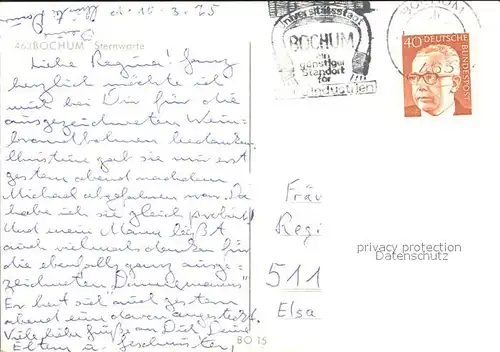 d. 15.3.75
463 BOCHUM Sternwarte
Liebe Regina! Ganz
herzlich möchte ich
mich bei Dir für die
ausgezeichneten Wein-
brandbohnen bedanken.
Christine gab sie mir erst
gestern abend nachdem
Michael abgefahren war. Da
habe ich sie gleich probiert
Und mein Mann läßt
auch vielmals danken für
die ebenfalls ganz ausge-
zeichneten
Er hat sich auch gestern
abend eine davon angesteckt.
Viele liebe Grüße an Dich, Deine
Eltern u. Geschwister,
BO 15
Universitätsstadt
BOCHUM
ein
günstiger
Standort
für
Industrien
BOCHUM
463
40 DEUTSCHE
BUNDESPOST
Fräu
Regi
511
Elsa
privacy protection
Datenschutz